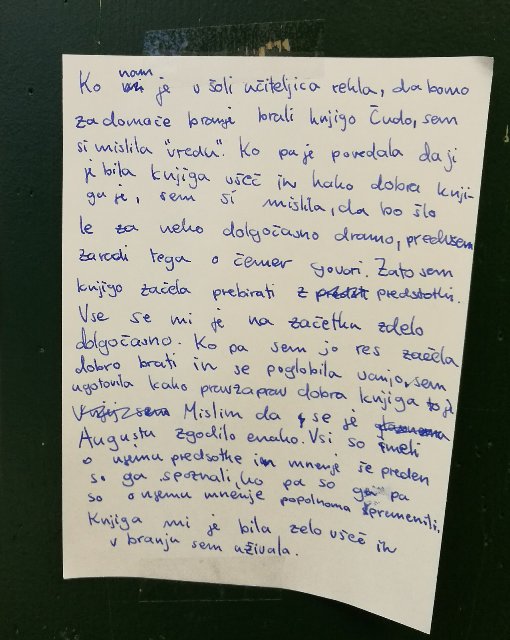 Ko nam je v šoli učiteljica rekla, da bomo
za domače branje brali knjigo Čudo, sem
si mislila "vredu". Ko pa je povedala da ji
je bila knjiga všeč in kako dobra knji-
ga je, sem si mislila, da bo šlo
le za neko dolgočasno dramo, predvsem
zaradi tega o čemer govori. Zato sem
knjigo začela prebirati z predsodki.
Vse se mi je na začetku zdelo
dolgočasno. Ko pa sem jo res začela
dobro brati in se poglobila vanjo, sem
ugotovila kako pravzaprav dobra knjiga to je
Mislim da se je
Augustu zgodilo enako. Vsi so imeli
o njemu predsotke in mnenje še preden
so ga spoznali, ko pa so ga pa
so o njemu mnenje popolnoma spremenili.
Knjiga mi je bila zelo všeč in
v branju sem uživala.